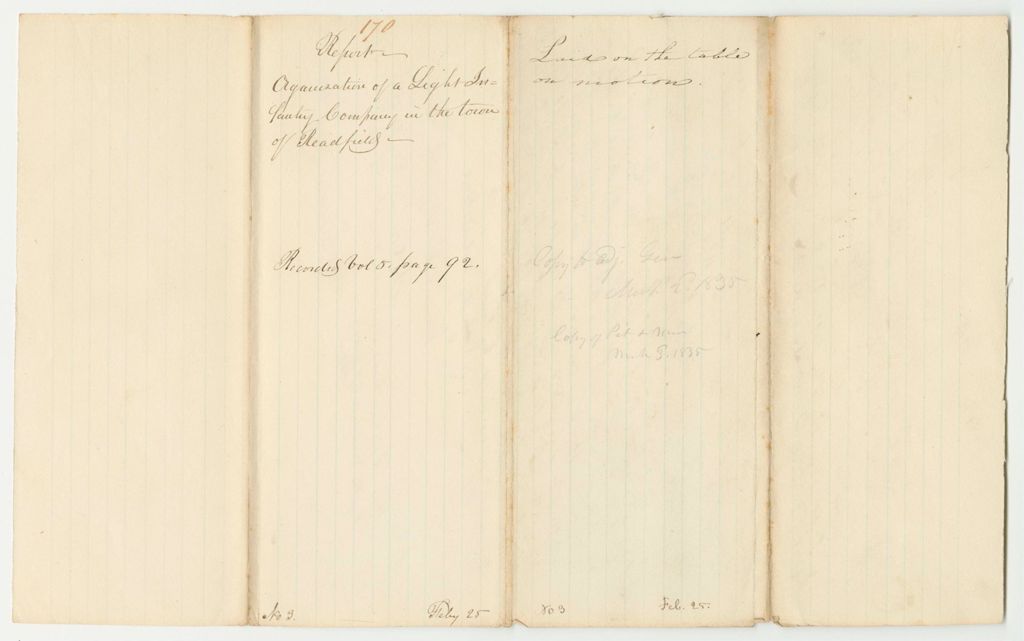 170
Report
Organization of a Light In=
fantry Company in the town
of Readfield
Recorded Vol 5. page 92.
No 3.
Feby 25
Laid on the table
on motion.
Copy to Adj. Gen
March 2. 1835
Copy of Pet &
March 3. 1835
No 3
Feb. 25.